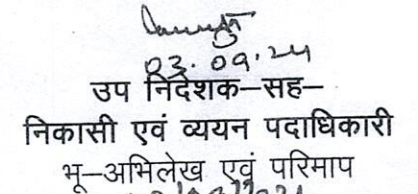 03.09.24
उप निदेशक–सह–
निकासी एवं व्ययन पदाधिकारी
भू–अभिलेख एवं परिमाप